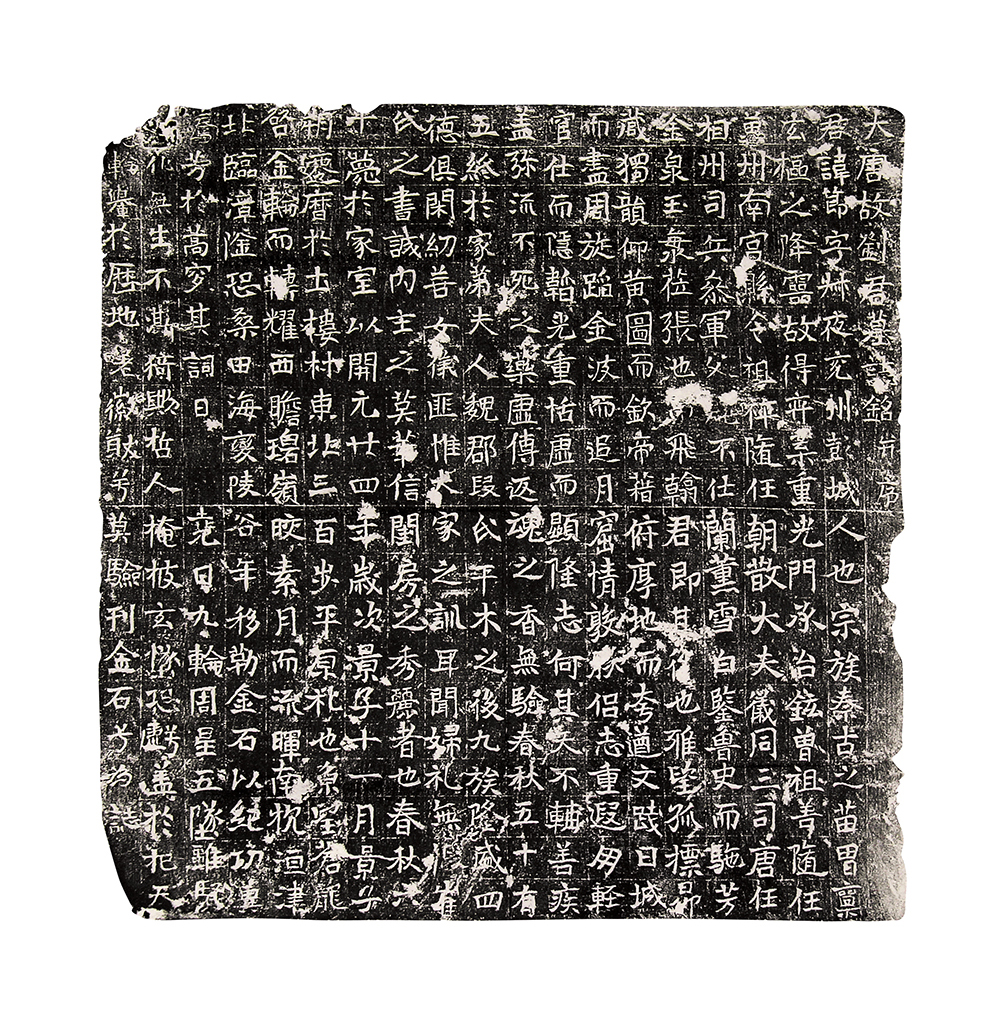 大唐故劉君墓誌銘并序
君諱節字林夜兖州彭城人也宗族秦古之苗冑禀
玄樞之降靈故得弈葉重光門承冶鉉曾祖善隨任
冀州南宮縣令祖隨任朝散大夫儀同三司唐任
相州司兵叅軍父不仕蘭薫雪白鑒魯史而馳芳
金泉玉彖莅張也飛翰君即其後也雅望孤標昂
藏獨韻仰黄圖而欽帝藉俯厚地而夸遒文踐日城
而盡周旋蹈金波而追月窟情敦勝侣志重遐朋輕
官仕而隱韜光重恬虚而顯隆志何其天不輔善疾
盖弥流不死之藥虚傳返魂之香無驗春秋五十有
五終於家第夫人魏郡段氏平木之後九族隆盛四
德俱閑紉善女儀匪惟大家之訓耳聞婦礼無虧崔
氏之書誡内主之莫華信閨房之秀麗者也春秋六
十薨於家室以開元廿四年歳次景子十一月景子
朔遷厝於土樓村東北三百步平原礼也東望若龍
啓金輪而轉耀西瞻瑅嶺皎素月而流暉南覜洹津
北臨漳滏恐桑田海變陵谷年移勒金石以絕功薦
芳於蒿穸其詞曰　堯日九輪周星五墜雖賢
無生不歟猗歟哲人掩枝玄墜恐虧盖於杞天
轝於歴地者徽猷兮莫驗刊金石兮為誌